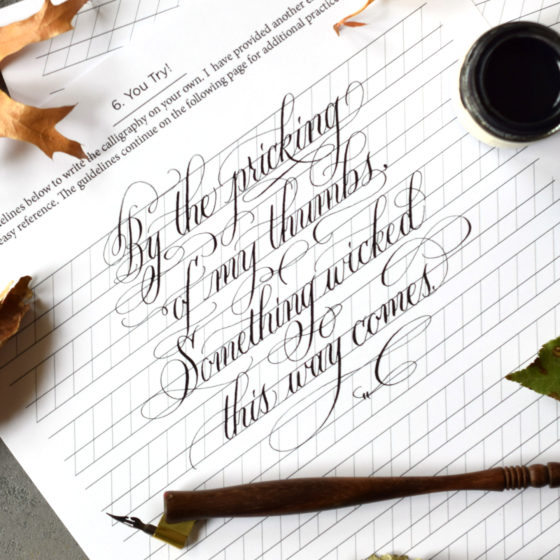 6. You Try!
delines below to write the calligraphy on your own. I have provided another e
easy reference. The guidelines continue on the following page for additional practice
By the pricking
of my thumbs,
Something wicked
this way comes.